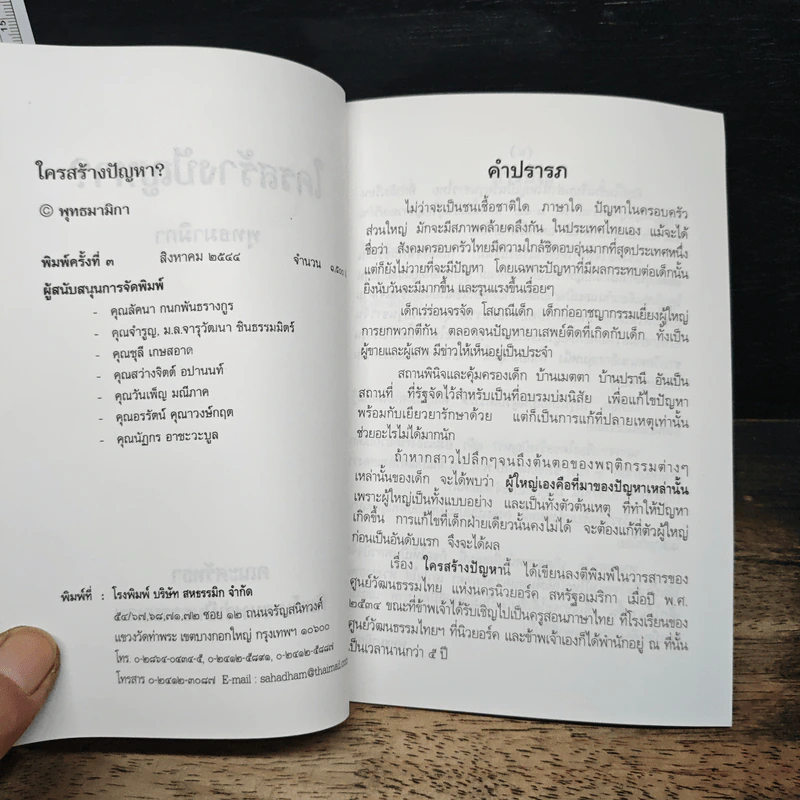 ใครสร้างปัญหา?
© พุทธมามิกา
พิมพ์ครั้งที่ ๓ สิงหาคม ๒๕๔๔ จำนวน ๑,๕๐๐
ผู้สนับสนุนการจัดพิมพ์
- คุณลัคนา กนกพันธรางกูร
- คุณจำรูญ, ม.ล.จารุวัฒนา ชินธรรมมิตร์
- คุณชุลี เกษสอาด
- คุณสว่างจิตต์ อปานนท์
- คุณวันเพ็ญ มณีภาค
- คุณอรรัตน์ คุณาวงษ์กฤต
- คุณนัฏกร อาชะวะบูล
พิมพ์ที่ : โรงพิมพ์ บริษัท สหธรรมิก จำกัด
๕๔/๖๗,๖๘,๗๑,๗๒ ซอย ๑๒ ถนนจรัญสนิทวงศ์
แขวงวัดท่าพระ เขตบางกอกใหญ่ กรุงเทพฯ ๑๐๖๐๐
โทร. ๐-๒๘๖๔-๐๔๓๔-๕, ๐-๒๔๑๒-๕๘๙๑, ๐-๒๔๑๒-๕๘๘๗
โทรสาร ๐-๒๔๑๒-๓๐๘๗ E-mail : sahadham@thaimail.com
คำปรารภ
ไม่ว่าจะเป็นชนเชื้อชาติใด ภาษาใด ปัญหาในครอบครัว
ส่วนใหญ่ มักจะมีสภาพคล้ายคลึงกัน ในประเทศไทยเอง แม้จะได้
ชื่อว่า สังคมครอบครัวไทยมีความใกล้ชิดอบอุ่นมากที่สุดประเทศหนึ่ง
แต่ก็ยังไม่วายที่จะมีปัญหา โดยเฉพาะปัญหาที่มีผลกระทบต่อเด็กนั้น
ยิ่งนับวันจะมีมากขึ้น และรุนแรงขึ้นเรื่อยๆ
เด็กเร่ร่อนจรจัด โสเภณีเด็ก เด็กก่ออาชญากรรมเยี่ยงผู้ใหญ่
การยกพวกตีกัน ตลอดจนปัญหายาเสพย์ติดที่เกิดกับเด็ก ทั้งเป็น
ผู้ขายและผู้เสพ มีข่าวให้เห็นอยู่เป็นประจำ
สถานพินิจและคุ้มครองเด็ก บ้านเมตตา บ้านปรานี อันเป็น
สถานที่ ที่รัฐจัดไว้สำหรับเป็นที่อบรมบ่มนิสัย เพื่อแก้ไขปัญหา
พร้อมกับเยียวยารักษาด้วย แต่ก็เป็นการแก้ที่ปลายเหตุเท่านั้น
ช่วยอะไรไม่ได้มากนัก
ถ้าหากสาวไปลึกๆจนถึงต้นตอของพฤติกรรมต่างๆ
เหล่านั้นของเด็ก จะได้พบว่า ผู้ใหญ่เองคือที่มาของปัญหาเหล่านั้น
เพราะผู้ใหญ่เป็นทั้งแบบอย่าง และเป็นทั้งตัวต้นเหตุ ที่ทำให้ปัญหา
เกิดขึ้น การแก้ไขที่เด็กฝ่ายเดียวนั้นคงไม่ได้ จะต้องแก้ที่ตัวผู้ใหญ่
ก่อนเป็นอันดับแรก จึงจะได้ผล
เรื่อง ใครสร้างปัญหานี้ ได้เขียนลงตีพิมพ์ในวารสารของ
ศูนย์วัฒนธรรมไทย แห่งนครนิวยอร์ค สหรัฐอเมริกา เมื่อปี พ.ศ.
๒๕๓๔ ขณะที่ข้าพเจ้าได้รับเชิญไปเป็นครูสอนภาษาไทย ที่โรงเรียนของ
ศูนย์วัฒนธรรมไทยฯ ที่นิวยอร์ค และข้าพเจ้าเองก็ได้พำนักอยู่ ณ ที่นั้น
เป็นเวลานานกว่า ๕ ปี